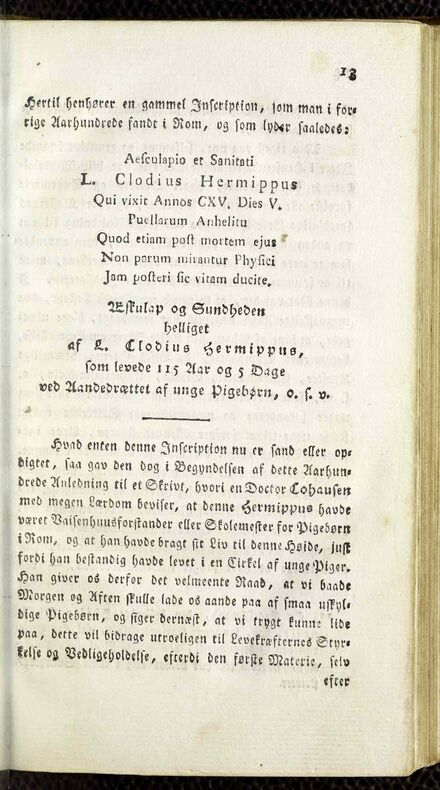 13
Hertil henhører en gammel Inscription, som man i for-
rige Aarhundrede fandt i Rom, og som lyder saaledes:
Aesculapio et Sanitati
L. Clodius Hermippus
Qui vixit Annos CXV. Dies V.
Puellarum Anhelitu
Quod etiam post mortem ejus
Non parum mirantur Physici
Jam posteri sic vitam ducite.
Æskulap og Sundheden
helliget
af L. Clodius Hermippus,
som levede 115 Aar og 5 Dage
ved Aandedrættet af unge Pigebørn, o. s. v.
Hvad enten denne Inscription nu er sand eller op-
digtet, saa gav den dog i Begyndelsen af dette Aarhun-
drede Anledning til et Skrivt, hvori en Doctor Cohausen
med megen Lærdom beviser, at denne Hermippus havde
været Vaisenhuusforstander eller Skolemester for Pigebørn
i Rom, og at han havde bragt sit Liv til denne Høide, just
fordi han bestandig havde levet i en Cirkel af unge Piger.
Han giver os derfor det velmeente Raad, at vi baade
Morgen og Aften skulle lade os aande paa af smaa uskyl-
dige Pigebørn, og siger dernæst, at vi trygt kunne lide
paa, dette vil bidrage utroeligen til Levekræfternes Styr-
kelse og Vedligeholdelse, efterdi den første Materie, selv
efter